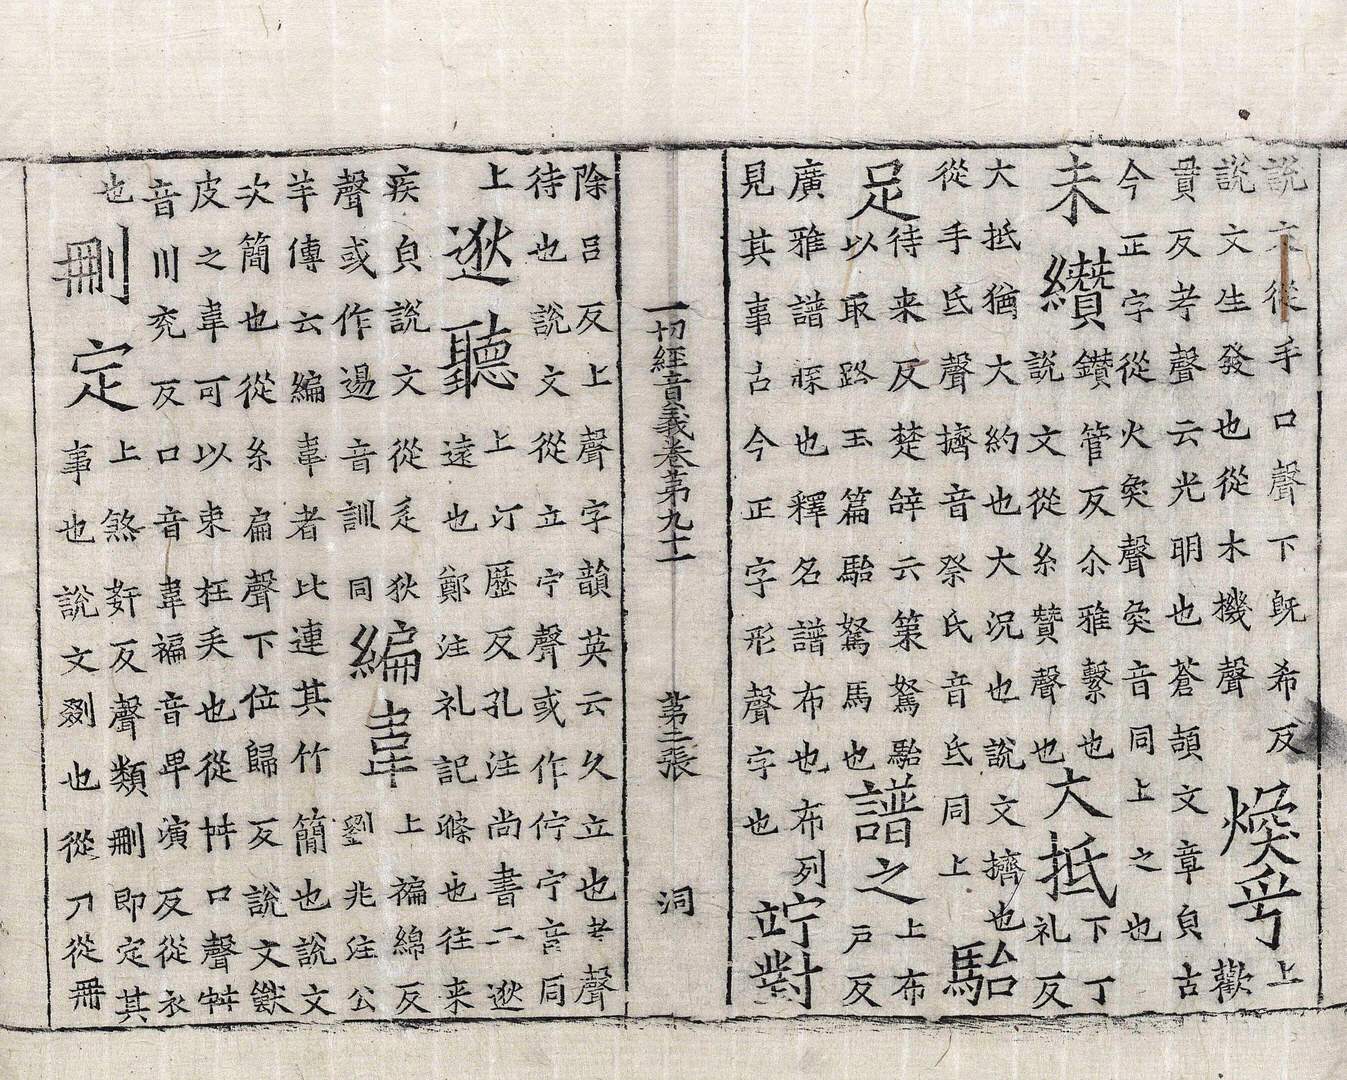 說文從手口聲下旣希反
說文生發也從木機聲
煥乎
上
歡
貫反考聲云光明也蒼頡文章皃古
今正字從火奐聲奐音同上之也
未纘
鑽管反尒雅繫也
說文從糸贊聲也
大抵
下丁
礼反
大抵猶大約也大況也說文擠也
從手氐聲擠音祭氐音氐同上
駘
足
待来反楚辝云策駑駘
以取路玉篇駘駑馬也
譜之
上布
戸反
廣雅譜牒也釋名譜布也布列
見其事古今正字形聲字也
竚對
一切經音義卷第九十一 第二張 洞
除呂反上聲字韻英云久立也考聲
待也說文從立宁聲或作佇宁音同
上
逖聽
上汀歷反孔注尚書二逖
遠也鄭注礼記滌也往来
疾皃說文從辵狄
聲或作逷音訓同
編韋
上褊綿反
劉兆注公
羊傳云編韋者比連其竹簡也說文
次簡也從糸扁聲下位歸反說文獸
皮之韋可以束枉戾也從舛口聲舛
音川兖反口音韋褊音卑演反從衣
也
刪定
上煞姧反聲類刪即定其
事也說文剟也從刀從冊